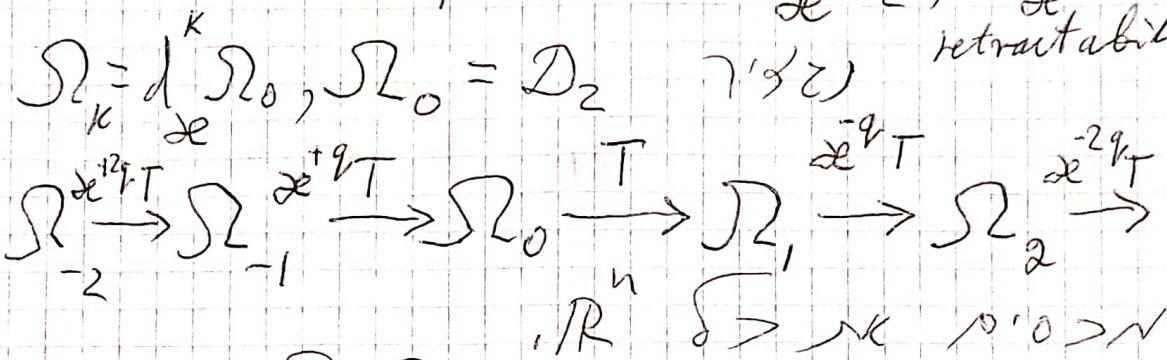 retractabil
Ω_k = d_æ^k Ω_0, Ω_0 = D_2 נגדיר
Ω_{-2} \xrightarrow{æ^{+2q}T} Ω_{-1} \xrightarrow{æ^{+q}T} Ω_0 \xrightarrow{T} Ω_1 \xrightarrow{æ^{-q}T} Ω_2 \xrightarrow{æ^{-2q}T}
מכסים את כל ℝ^n.